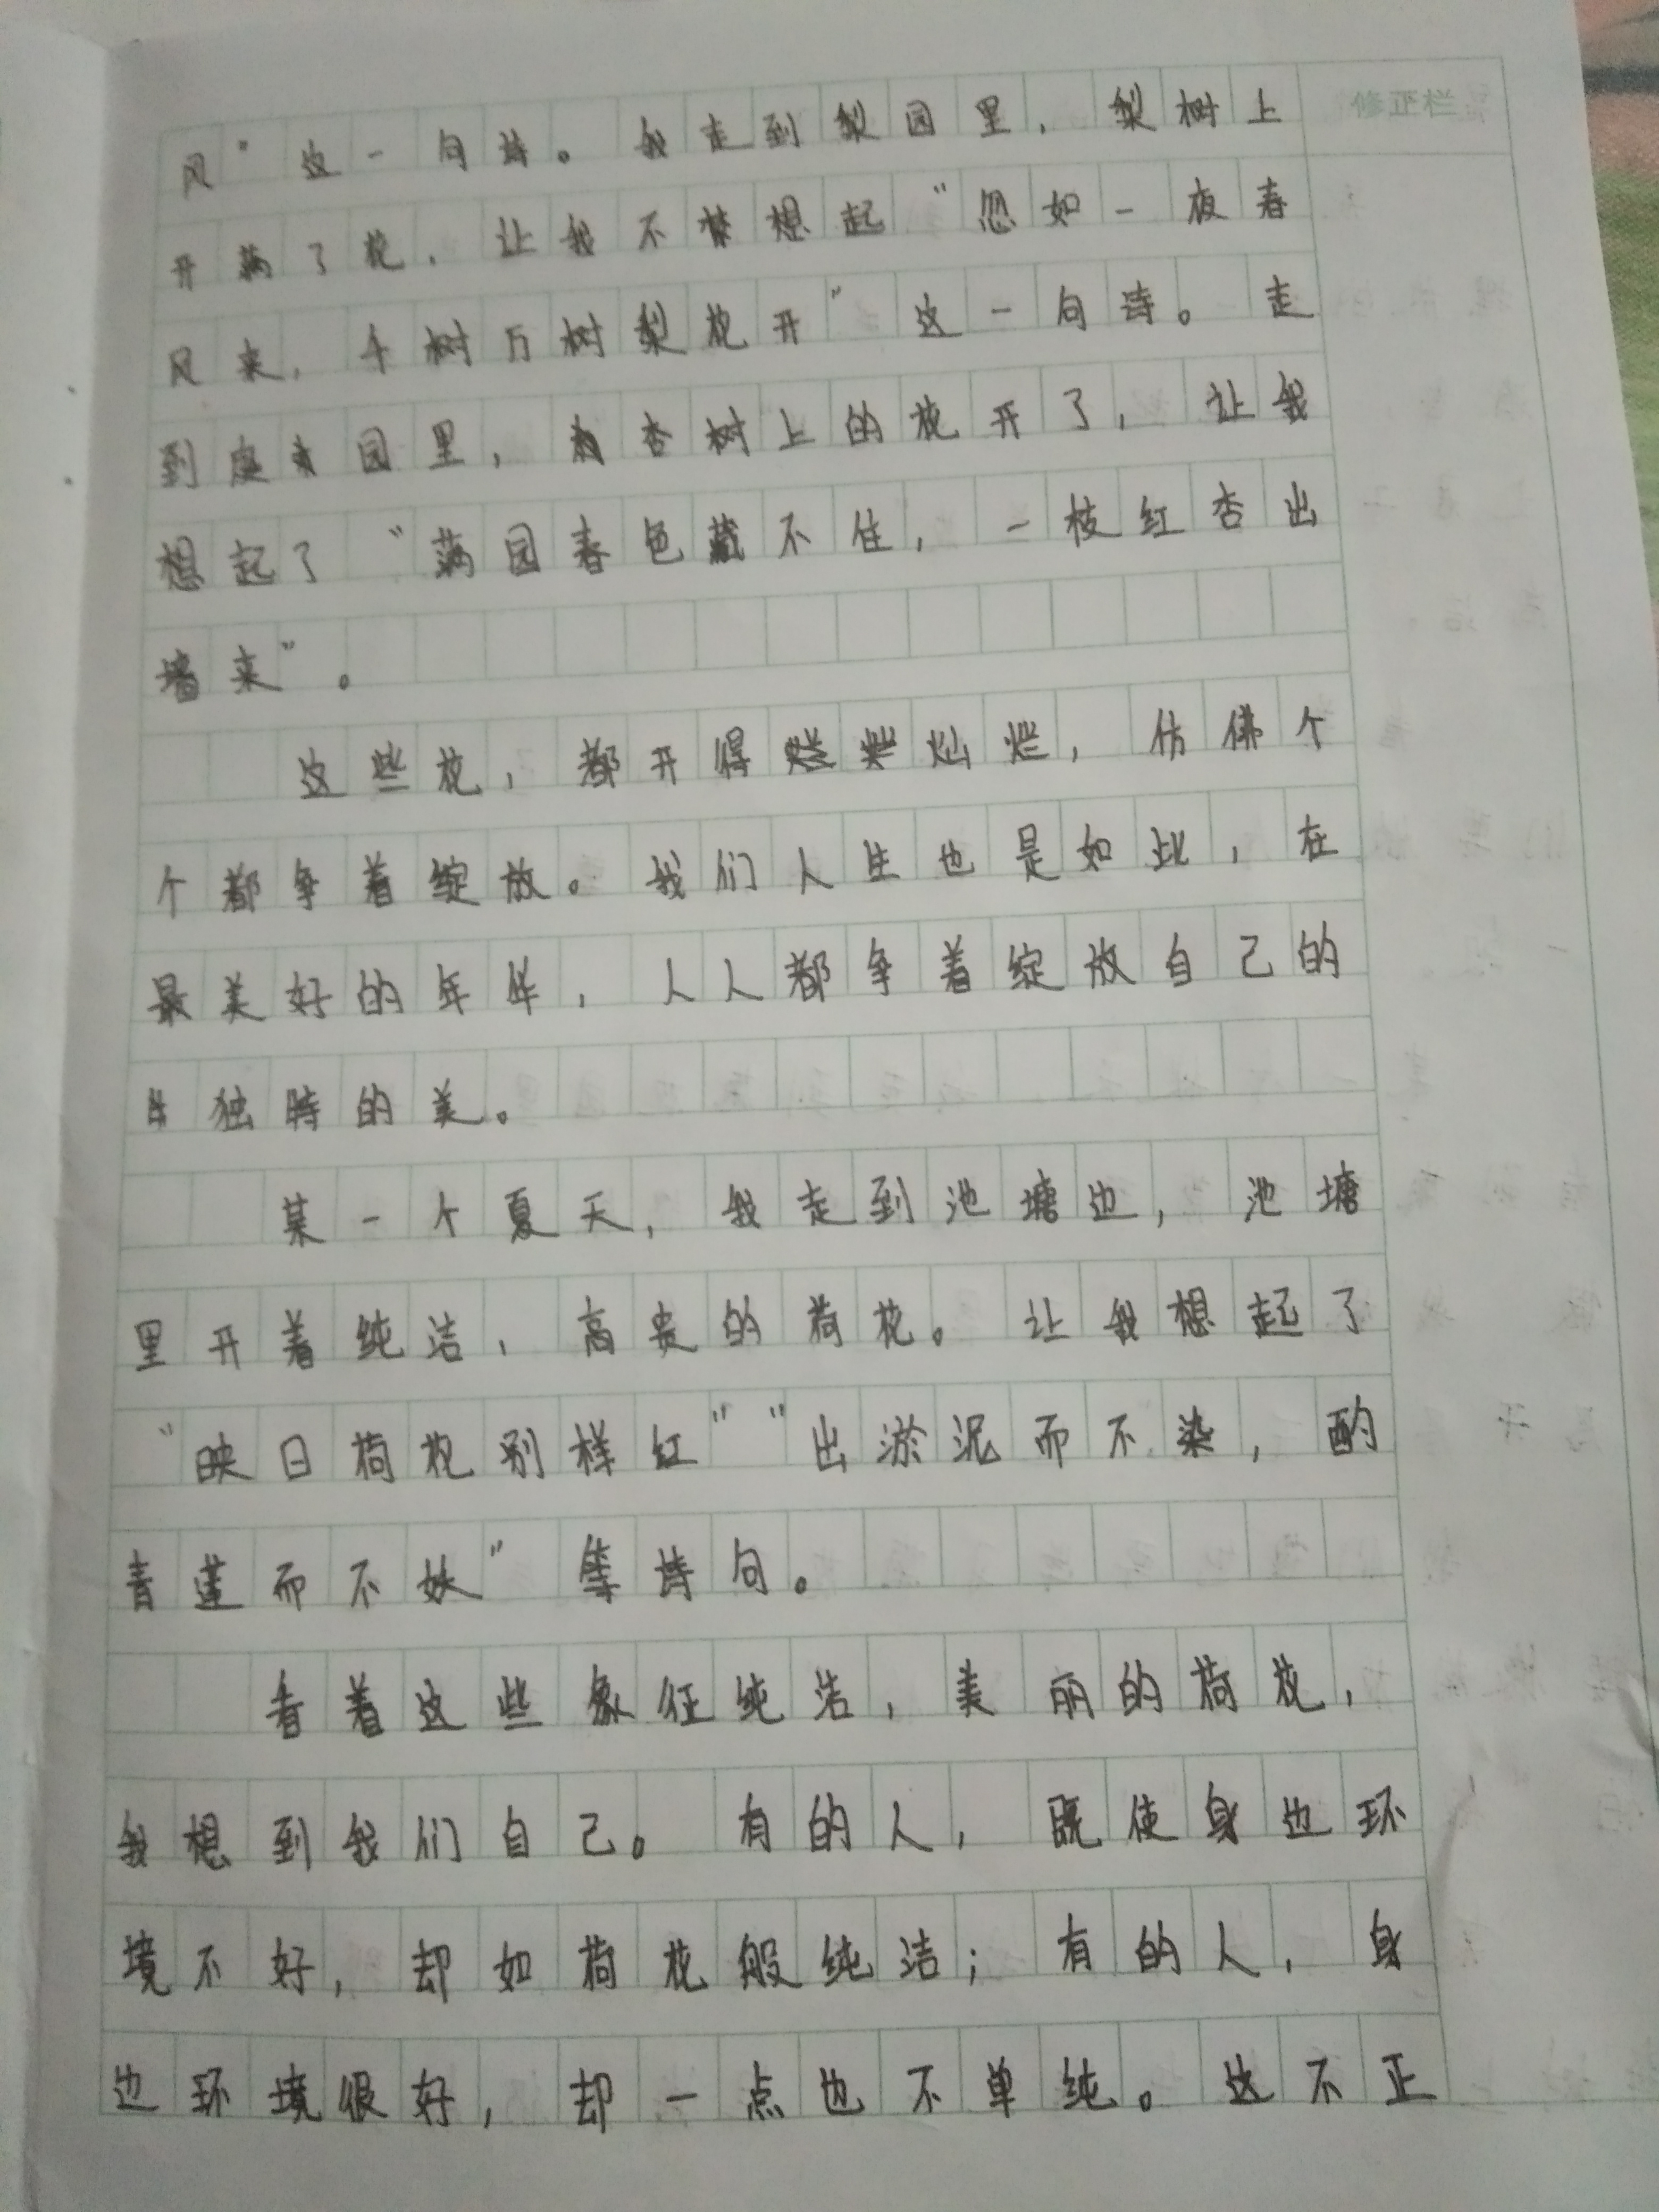 修正栏
风”这一句诗。我走到梨园里，梨树上
开满了花，让我不禁想起“忽如一夜春
风来，千树万树梨花开”这一句诗。走
到庭园里，杏树上的花开了，让我
想起了“满园春色藏不住，一枝红杏出
墙来”。
这些花，都开得灿烂，仿佛个
个都争着绽放。我们人生也是如此，在
最美好的年华，人人都争着绽放自己的
独特的美。
某一个夏天，我走到池塘边，池塘
里开着纯洁，高贵的荷花。让我想起了
“映日荷花别样红”“出淤泥而不染，酌
青莲而不妖”等诗句。
看着这些象征纯洁，美丽的荷花，
我想到我们自己。有的人，既使身边环
境不好，却如荷花般纯洁；有的人，身
边环境很好，却一点也不单纯。这不正